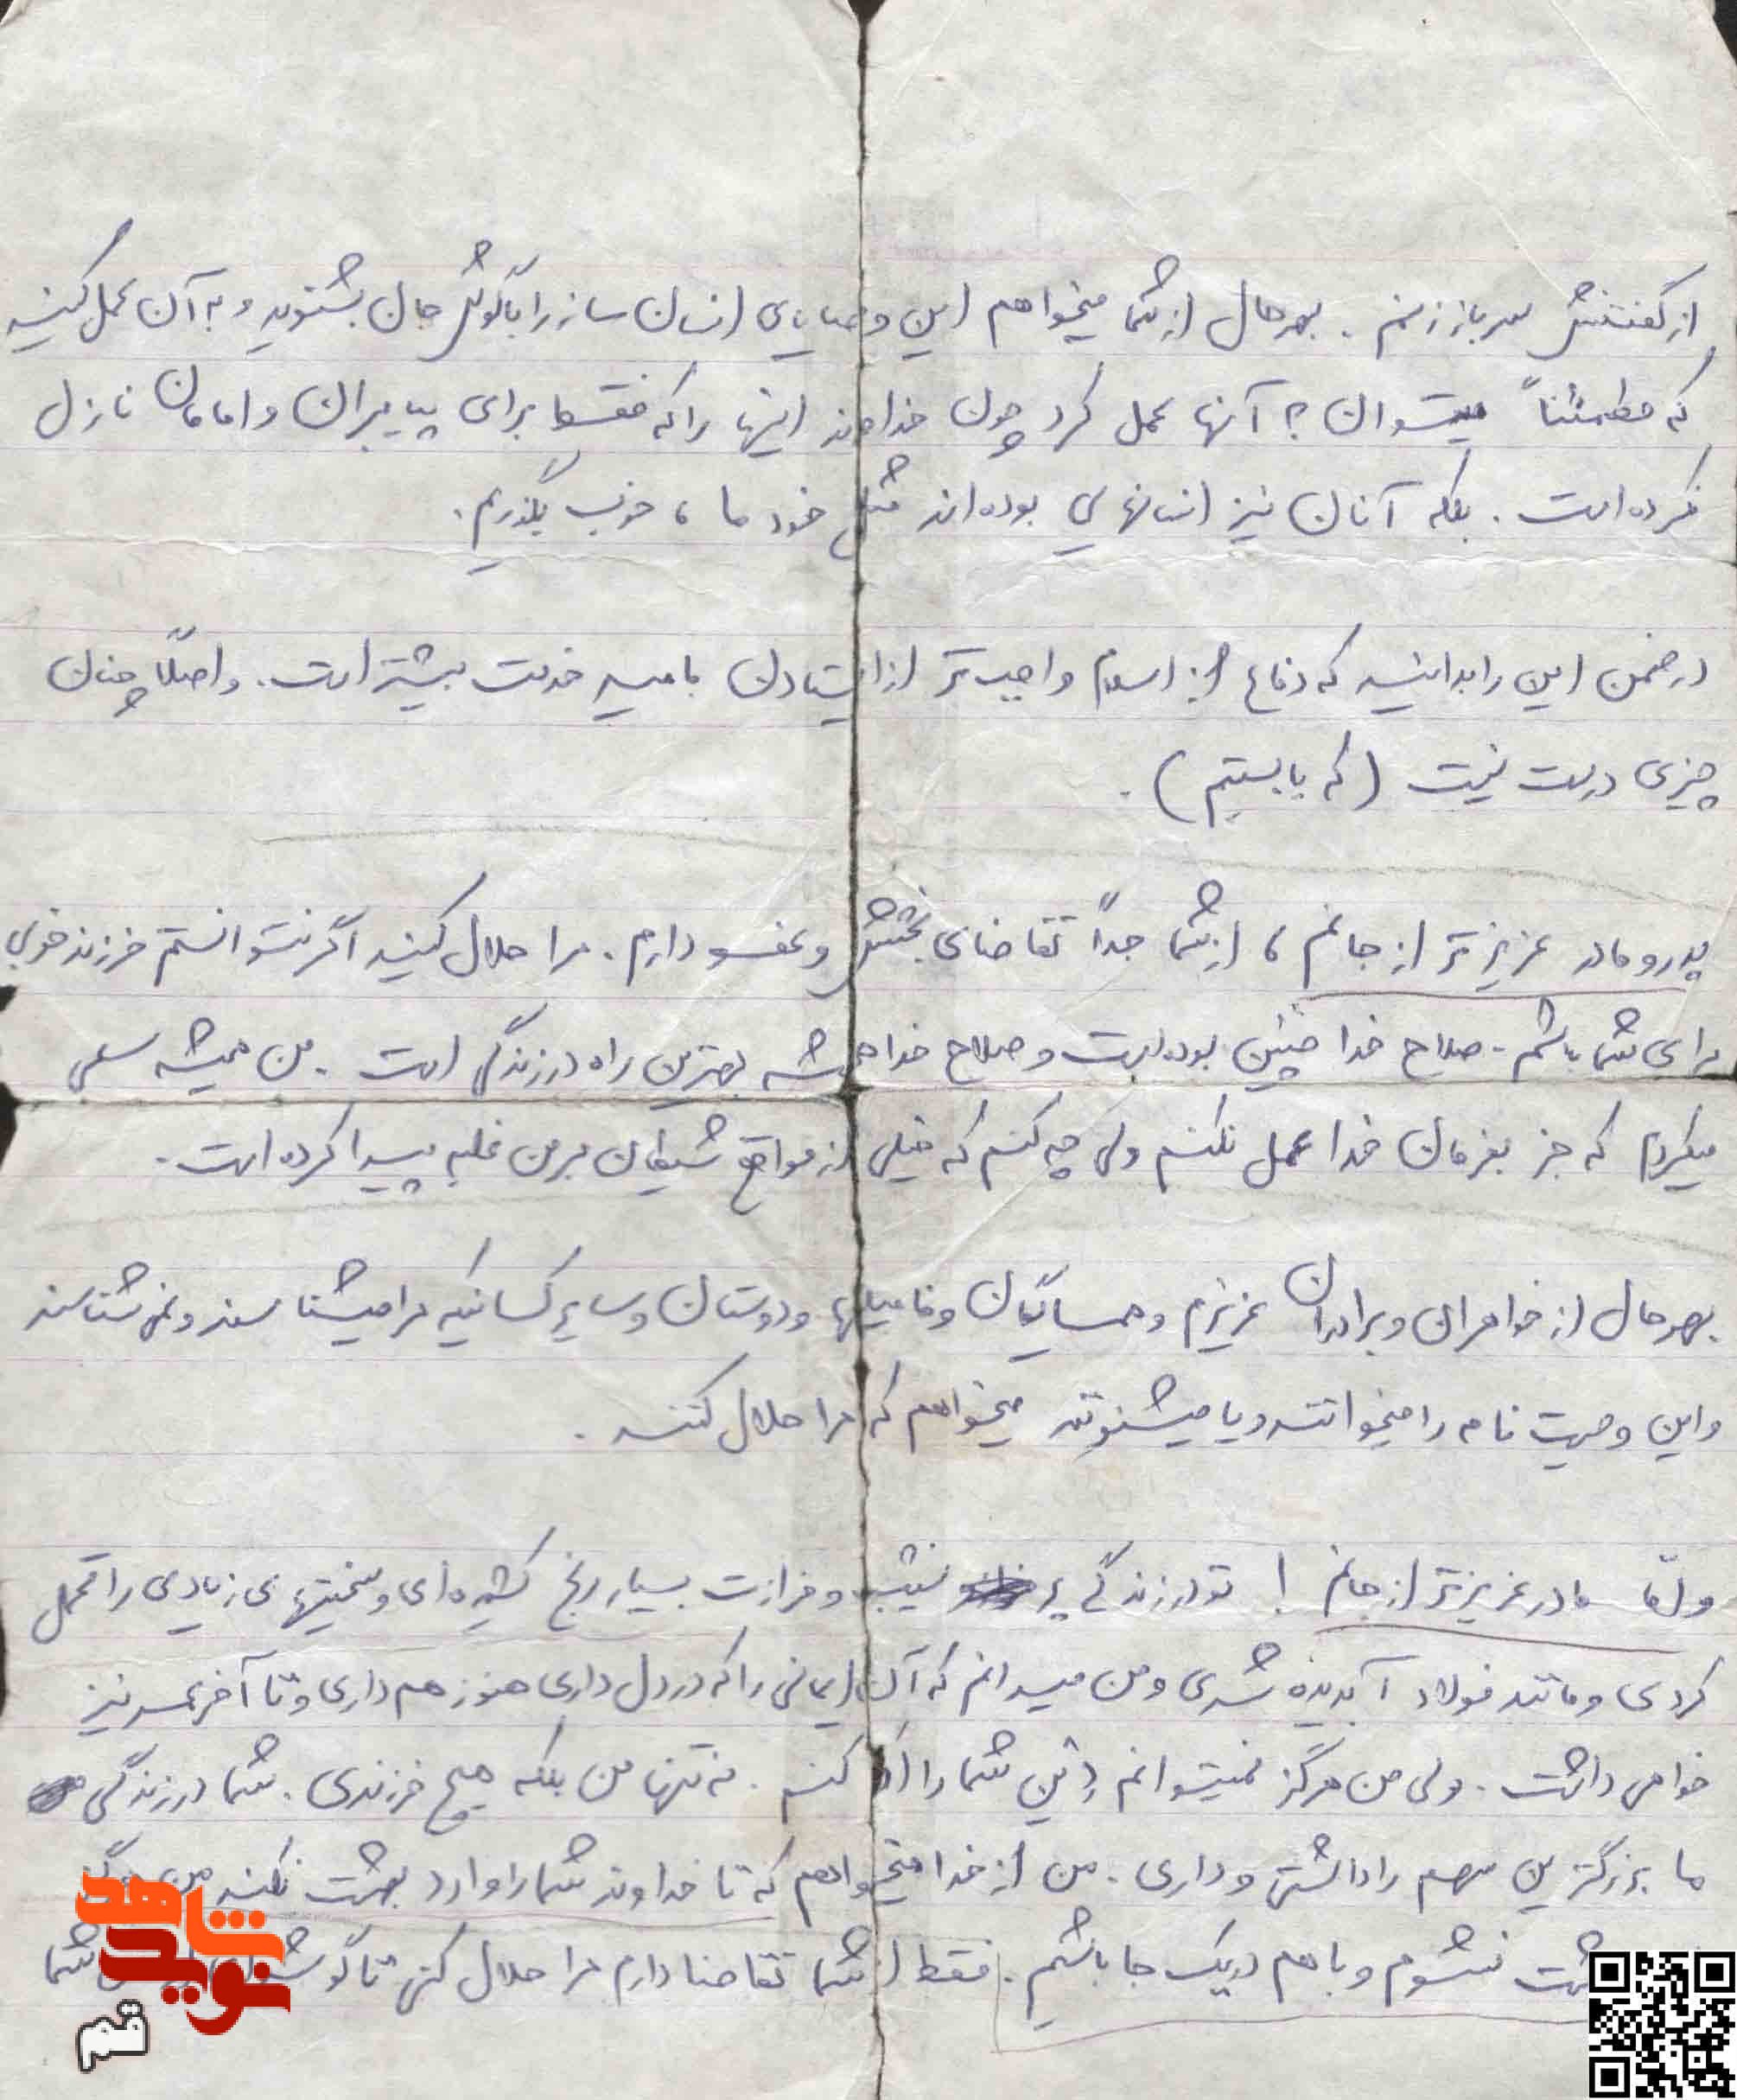 از گفتنش سرباز زنم . بهرحال از شما میخواهم این وصایای انسان ساز را با گوش جان بشنوید و به آن عمل کنید
که مطمئناً میتوان به آنها عمل کرد چون خداوند اینها را که فقط برای پیامبران و امامان نازل
نکرده است . بلکه آنان نیز انسانهایی بوده‌اند مثل خود ما ، خوب بگذریم .
در ضمن این را بدانید که دفاع از اسلام واجب تر از ایستادن با امید خدمت بیشتر است . و اصلاً چنان
چیزی درست نیست ( که بایستیم ) .
پدر و مادر عزیزتر از جانم ، از شما جداً تقاضای بخشش و عفو دارم . مرا حلال کنید اگر نتوانستم فرزند خوبی
برای شما باشم . صلاح خدا چنین بوده است و صلاح خدا همیشه بهترین راه در زندگی است . من همیشه سعی
میکردم که جز بفرمان خدا عمل نکنم ولی چه کنم که خیلی از مواقع شیطان بر من غلبه پیدا کرده است .
بهرحال از خواهران و برادران عزیزم و همسایگان و فامیلها و دوستان و سایر کسانیکه مرا میشناسند و نمی شناسند
و این وصیت نامه را میخوانند و یا میشنوند میخواهم که مرا حلال کنند .
و امّا مادر عزیزتر از جانم ! تو در زندگی پر نشیب و فرازت بسیار رنج کشیده‌ای و سختیهای زیادی را تحمل
کردی و مانند فولاد آبدیده شدی و من میدانم که آن ایمانی را که در دل داری هنوز هم داری و تا آخر عمر نیز
خواهی داشت . ولی من هرگز نمیتوانم دِین شما را ادا کنم . نه تنها من بلکه هیچ فرزندی . شما در زندگی
ما بزرگترین سهم را داشتی و داری . من از خدا میخواهم که تا خداوند شما را وارد بهشت نکند من هرگز
نشوم و باهم در یک جا باشیم . فقط از شما تقاضا دارم مرا حلال کنی تا شما
نوید شاهد
قم